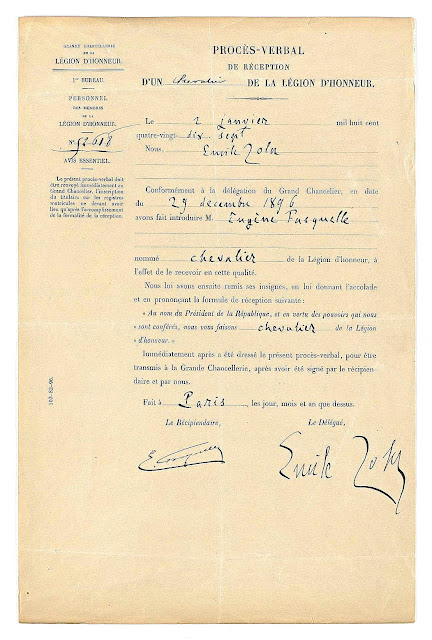 GRANDE CHANCELLERIE
DE LA
LÉGION D'HONNEUR.
1er BUREAU.
PERSONNEL
DES MEMBRES
DE LA
LÉGION D'HONNEUR.
N° 52618
AVIS ESSENTIEL.
Le présent procès-verbal doit
être renvoyé immédiatement au
Grand Chancelier, l'inscription
du titulaire sur les registres
matricules ne devant avoir
lieu qu'après l'accomplissement
de la formalité de la réception.
103-82-96.
PROCÈS-VERBAL
DE RÉCEPTION
D'UN chevalier DE LA LÉGION D'HONNEUR.
Le 2 janvier mil huit cent
quatre-vingt dix sept
Nous, Emile Zola
Conformément à la délégation du Grand Chancelier, en date
du 29 décembre 1896
avons fait introduire M. Eugène Fasquelle
nommé chevalier de la Légion d'honneur, à
l'effet de le recevoir en cette qualité.
Nous lui avons ensuite remis ses insignes, en lui donnant l'accolade
et en prononçant la formule de réception suivante :
« Au nom du Président de la République, et en vertu des pouvoirs qui nous
« sont conférés, nous vous faisons chevalier de la Légion
« d'honneur. »
Immédiatement après a été dressé le présent procès-verbal, pour être
transmis à la Grande Chancellerie, après avoir été signé par le récipien-
daire et par nous.
Fait à Paris, les jour, mois et an que dessus.
Le Récipiendaire,
Le Délégué,
E. Fasquelle
Emile Zola